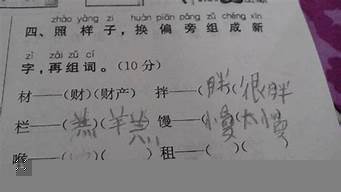 zhào yàng zi huàn piān páng zǔ chéng xīn
四、照样子，换偏旁组成新
zì zài zǔ cí
字，再组词。(10 分)
材——(财)(财产) 拌——(胖)(很胖
栏——( )(羊 馒——(慢)(太慢
喉——( )( ) 租——( )(